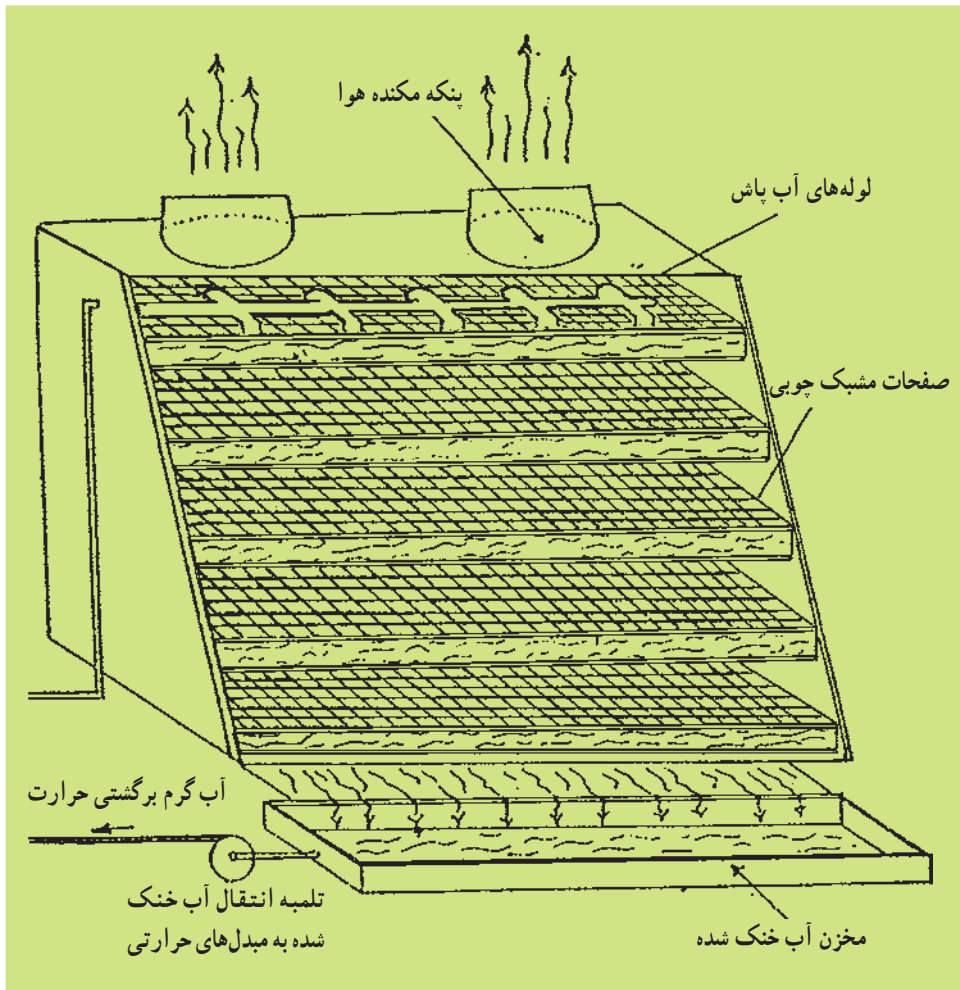 پنکه مکنده هوا
لوله‌های آب پاش
صفحات مشبک چوبی
آب گرم برگشتی حرارت
تلمبه انتقال آب خنک
شده به مبدل‌های حرارتی
مخزن آب خنک شده